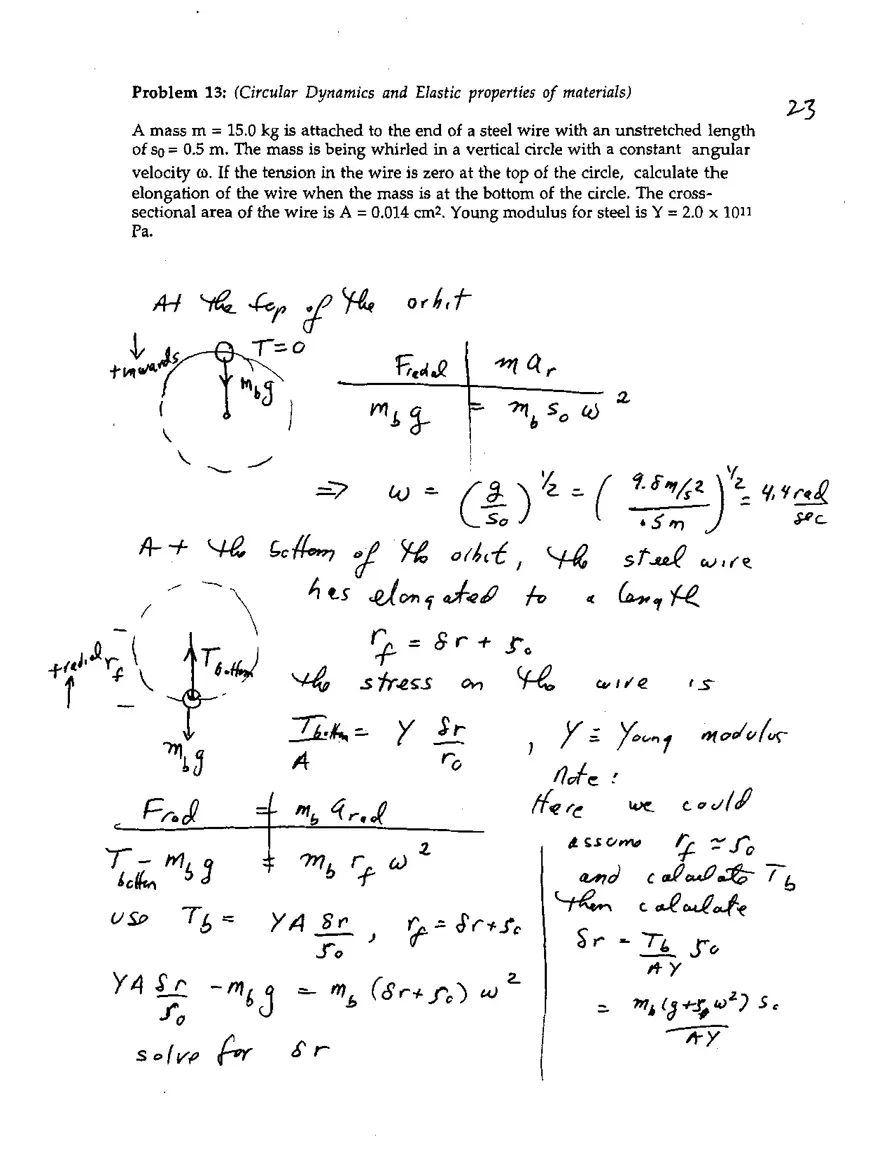 Problem 13: (Circular Dynamics and Elastic properties of materials)
23
A mass m = 15.0 kg is attached to the end of a steel wire with an unstretched length
of s₀ = 0.5 m. The mass is being whirled in a vertical circle with a constant angular
velocity ω. If the tension in the wire is zero at the top of the circle, calculate the
elongation of the wire when the mass is at the bottom of the circle. The cross-
sectional area of the wire is A = 0.014 cm². Young modulus for steel is Y = 2.0 x 10¹¹
Pa.
At the top of the orbit
↓
+inwards
T=0
m_b g
F_radial | m a_r
m_b g = m_b s₀ ω²
=> ω = (g/s₀)^1/2 = (9.8 m/s² / .5 m)^1/2 = 4.4 rad/sec
At the bottom of the orbit, the steel wire
has elongated to a length
r_f = δr + s₀
+radial
↑
r_f
T_bottom
m_b g
the stress on the wire is
T_bottom/A = Y δr/r₀ , Y ≡ Young modulus
F_rad = m_b a_rad
T_bottom - m_b g = m_b r_f ω²
use T_b = YA δr/s₀ , r_f = δr + s₀
YA δr/s₀ - m_b g = m_b (δr + s₀) ω²
solve for δr
Note:
Here we could
assume r_f ≃ s₀
and calculate T_b
then calculate
δr = T_b/AY s₀
= m_b (g + s₀ ω²) s₀ / AY